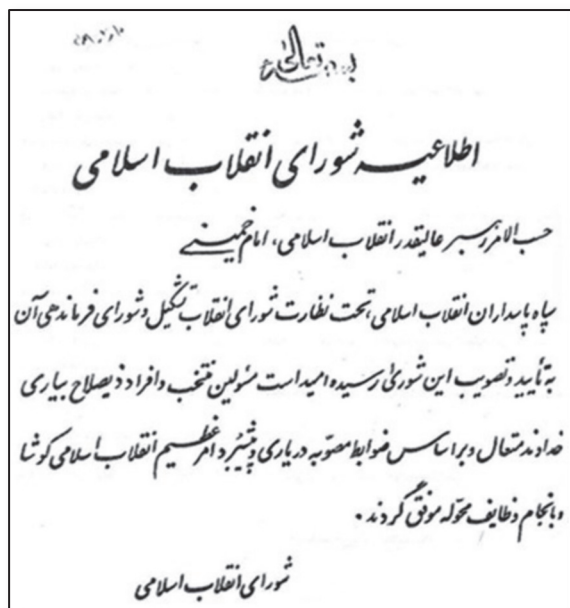 بسمه تعالی
اطلاعیه شورای انقلاب اسلامی
حسب الامر رهبر عالیقدر انقلاب اسلامی، امام خمینی
سپاه پاسداران انقلاب اسلامی، تحت نظارت شورای انقلاب تشکیل و شورای فرماندهی آن
به تأیید و تصویب این شوری رسیده امید است مسئولین منتخب و افراد ذیصلاح بیاری
خداوند متعال و بر اساس ضوابط مصوّبه در یاری و پیشبرد امر عظیم انقلاب اسلامی کوشا
و بانجام وظایف محوّله موفق گردند.
شورای انقلاب اسلامی